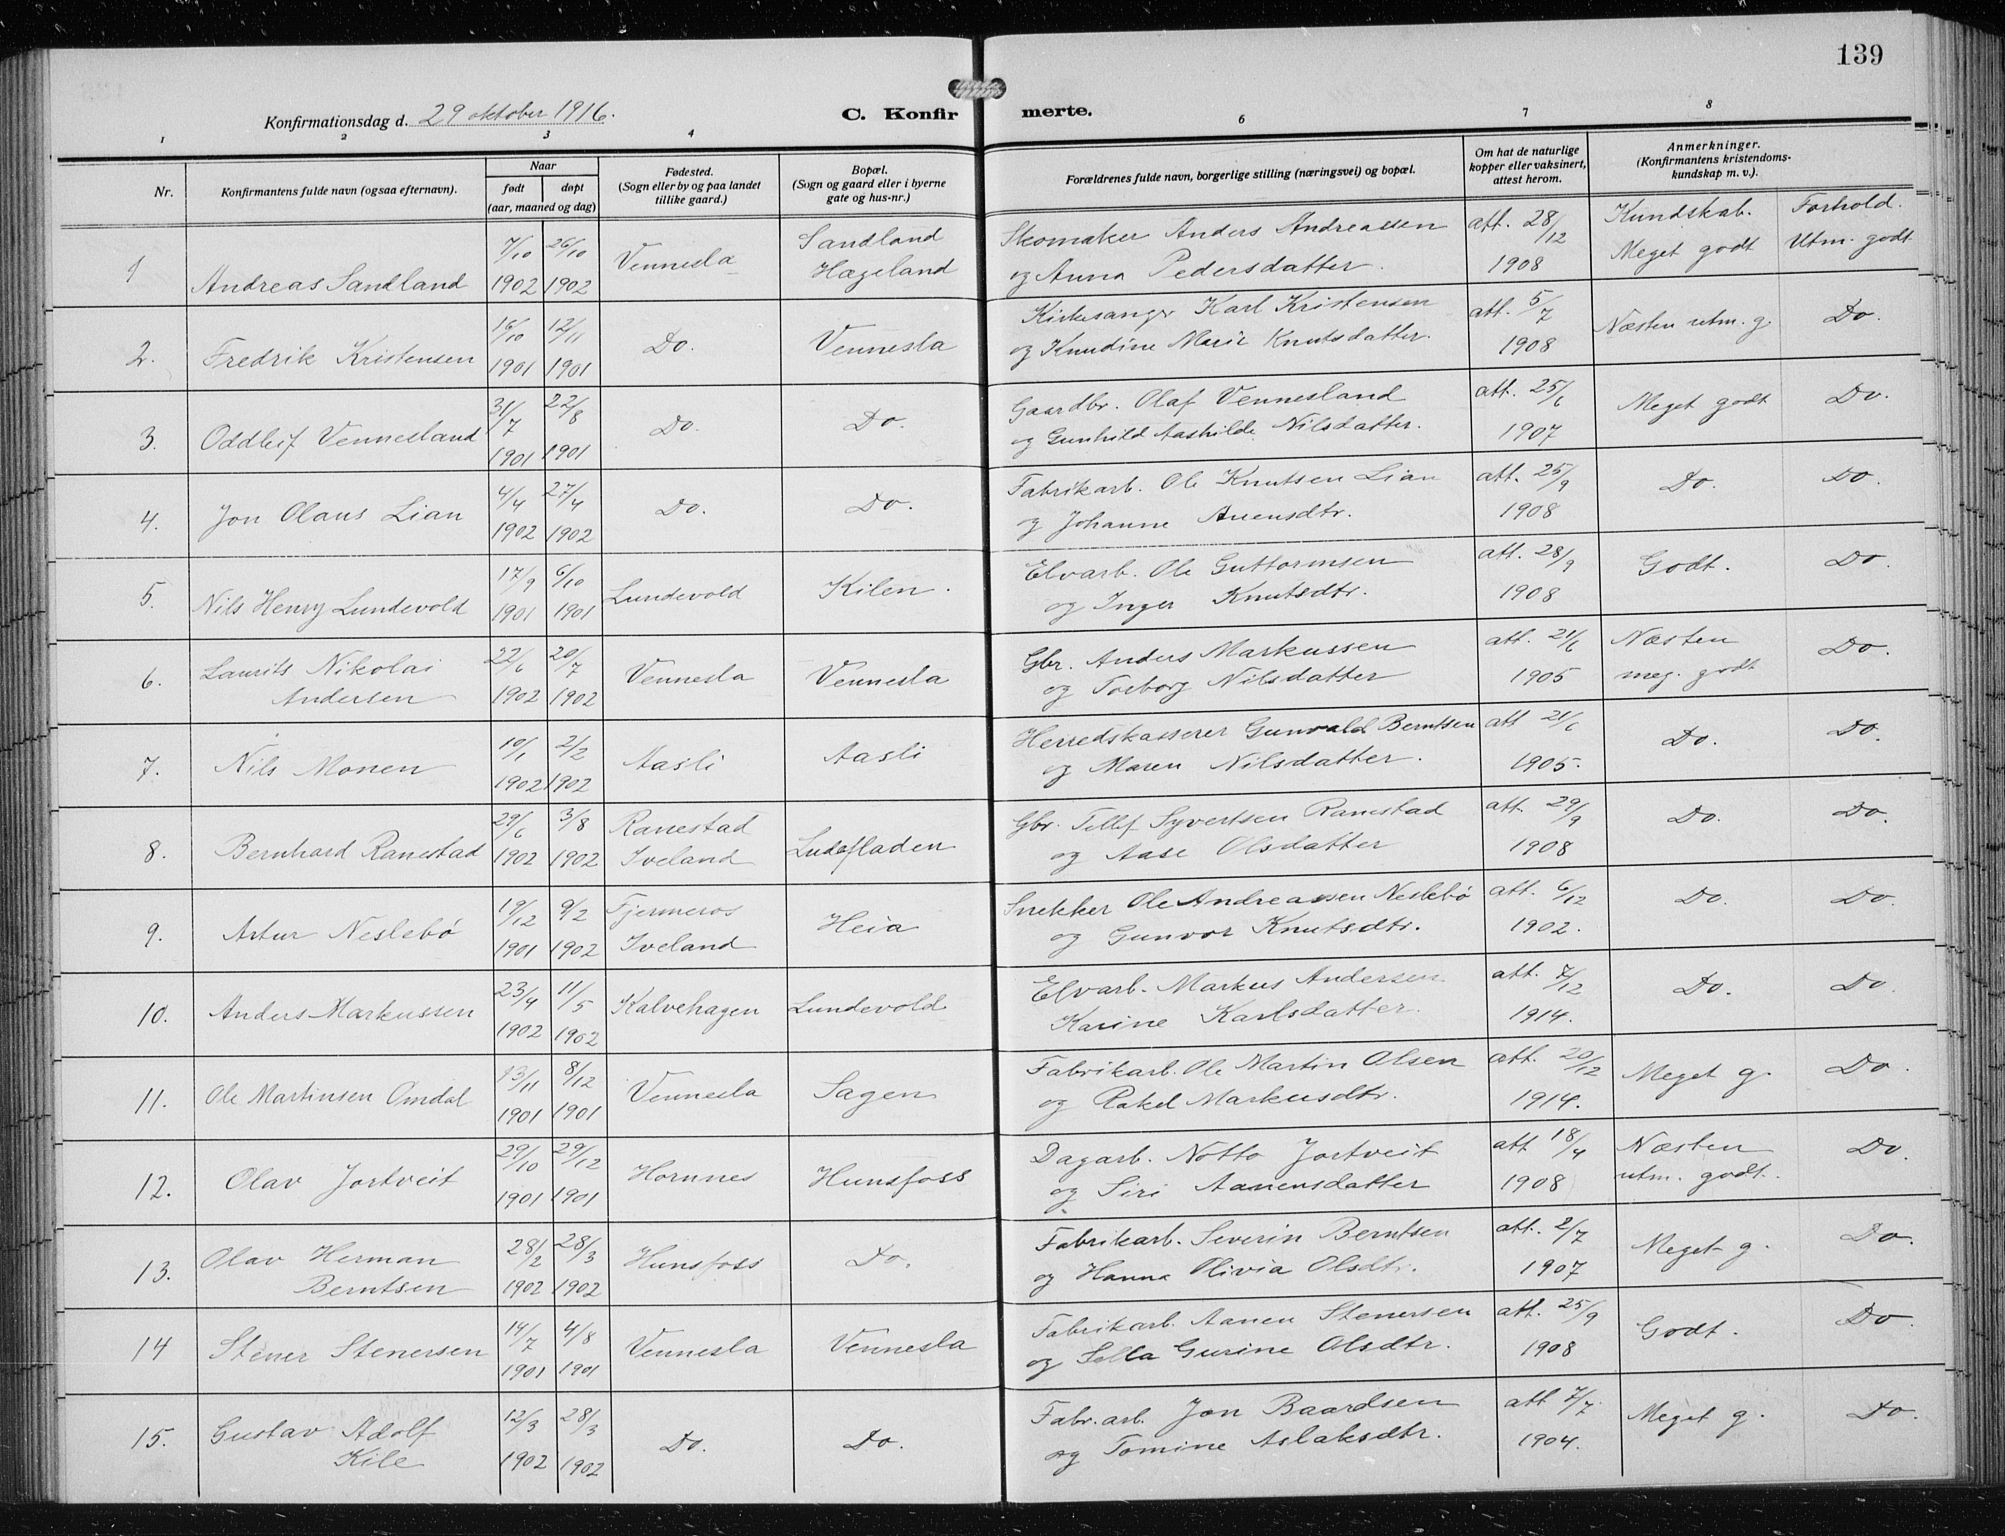 139
Konfirmationsdag d. 29 oktober 1916.
C. Konfirmerte.
1 2 3 4 6 7 8
Nr.
Konfirmantens fulde navn (ogsaa efternavn).
Naar
født
døpt
(aar, maaned og dag)
Fødested.
(Sogn eller by og paa landet
tillike gaard.)
Bopæl.
(Sogn og gaard eller i byerne
gate og hus-nr.)
Forældrenes fulde navn, borgerlige stilling (næringsvei) og bopæl.
Om hat de naturlige
kopper eller vaksinert,
attest herom.
Anmerkninger.
(Konfirmantens kristendoms-
kundskap m. v.).
Kundskab. Forhold.
1 Andreas Sandland 7/10 1902 26/10 1902 Vennesla Sandland Hægeland
Skomaker Anders Andreassen
og Anna Pedersdatter. att. 28/12 1908 Meget godt Utm. godt
2. Fredrik Kristensen 16/10 1901 12/11 1901 Do. Vennesla
Kirkesanger Karl Kristensen
og Knudine Marie Knutsdatter. att. 5/7 1908 Næsten utm. g. Do.
3. Oddleif Vennesland 31/7 1901 22/8 1901 Do. Do.
Gaardbr. Olaf Vennesland
og Gunhild Aashilde Nilsdatter. att. 25/6 1907 Meget godt Do.
4. Jon Olaus Lian 4/4 1902 27/4 1902 Do. Do.
Fabrikarb. Ole Knutsen Lian
og Johanne Auensdtr. att. 25/9 1908 Do. Do.
5. Nils Henry Lundevold 17/9 1901 6/10 1901 Lundevold Kilen.
Elvarb. Ole Guttormsen
og Inger Knutsdtr. att. 28/9 1908 Godt. Do.
6. Laurits Nikolai
Andersen 22/6 1902 20/7 1902 Vennesla Vennesla
Gbr. Anders Markussen
og Torborg Nilsdatter att. 21/6 1905 Næsten meg. godt Do.
7. Nils Monen 10/1 1902 2/2 1902 Aasli Aasli
Herredskasserer Gunvald Berntsen
og Maren Nilsdatter. att 21/6 1905. Do. Do.
8. Bernhard Ranestad 29/6 1902 3/8 1902 Ranestad Iveland Ludefladen
Gbr. Tellef Syvertsen Ranestad
og Aase Olsdatter att. 29/9 1908 Do. Do.
9. Artur Neslebö 19/12 1901 9/2 1902 Fjermeros Iveland Heia
Snekker Ole Andreassen Neslebö
og Gunvor Knutsdtr. att. 6/12 1902. Do. Do.
10. Anders Markussen 23/4 1902 11/5 1902 Kalvehagen Lundevold
Elvarb. Markus Andersen
Karine Karlsdatter. att. 7/12 1914. Do. Do.
11. Ole Martinsen Omdal 13/11 1901 8/12 1901 Vennesla Sagen
Fabrikarb. Ole Martin Olsen
og Rakel Markusdtr. att. 20/12 1914. Meget g. Do.
12. Olav Jortveit 29/10 1901 29/12 1901 Hornnes Hunsfoss
Dagarb. Notto Jortveit
og Siri Aanensdatter att 18/4 1908 Næsten utm. godt. Do.
13. Olav Herman
Berntsen 28/2 1902 28/3 1902 Hunsfoss Do.
Fabrikarb. Severin Berntsen
og Hanna Olivia Olsdtr. att. 2/7 1907 Meget g. Do.
14 Stener Stenersen 14/7 1901 4/8 1901 Vennesla Vennesla
Fabrikarb. Aanen Stenersen
og Sella Gurine Olsdtr. att. 25/9 1908 Godt. Do
15. Gustav Adolf
Kile 12/3 1902 28/3 1902 Do. Do.
Fabr. arb. Jon Baardsen
og Tomine Aslaksdtr. att 7/7 1904. Meget g. Do.